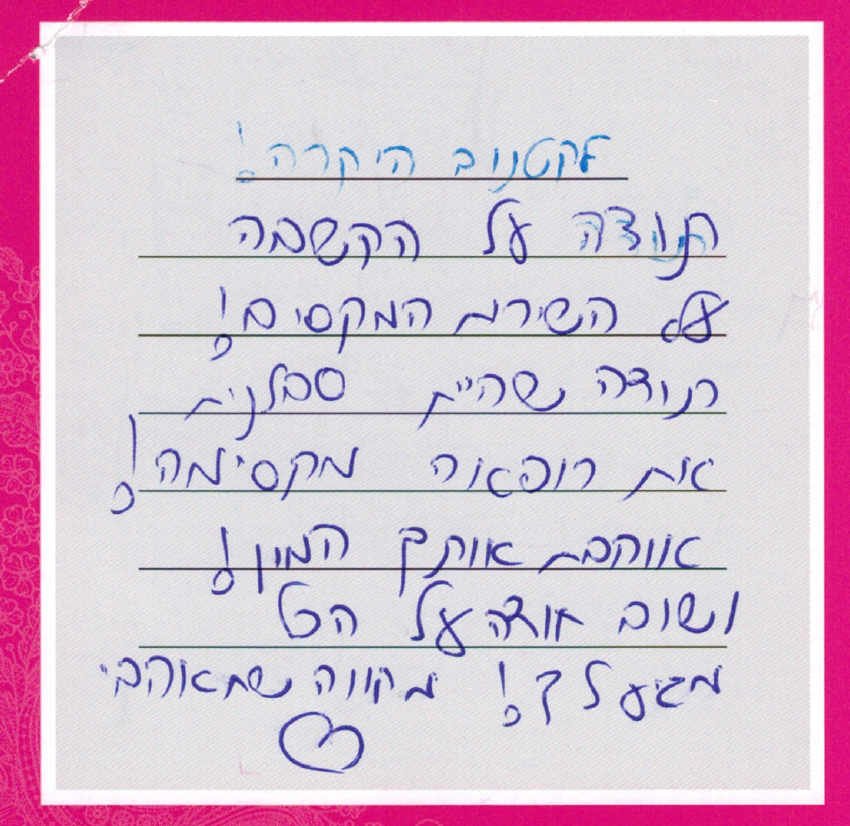 לקטנוב היקרה!
תודה על הקשבה
על השירות המקסים!
תודה שהיית סבלנית
את רופאה מקסימה!
אווהבת אותך המון!
ושוב תודה על הכל
מגיע לך! מקווה שתאוהבי